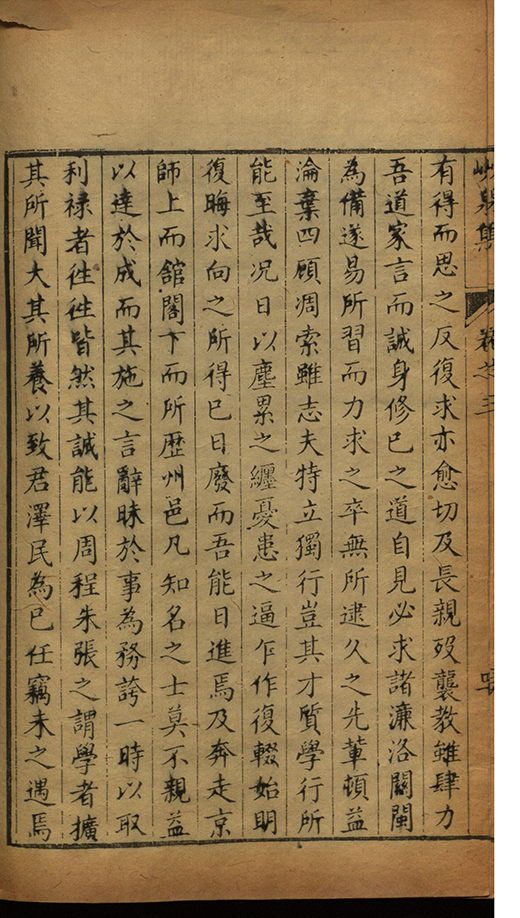 卷之三
有得而思之反復求亦愈切及長親歿襲教雖肆力
吾道家言而誠身修已之道自見必求諸濂洛關閩
為備遂易所習而力求之卒無所逮久之先軰頓益
淪棄四顧凋索雖志夫特立獨行豈其才質學行所
能至哉况日以塵累之纏憂患之逼乍作復輟始明
復晦求向之所得已日廢而吾能日進焉及奔走京
師上而舘閣下而所歴州邑凡知名之士莫不親益
以達於成而其施之言辭昧於事為務誇一時以取
利禄者徃徃皆然其誠能以周程朱張之謂學者擴
其所聞大其所養以致君澤民為已任竊未之遇焉